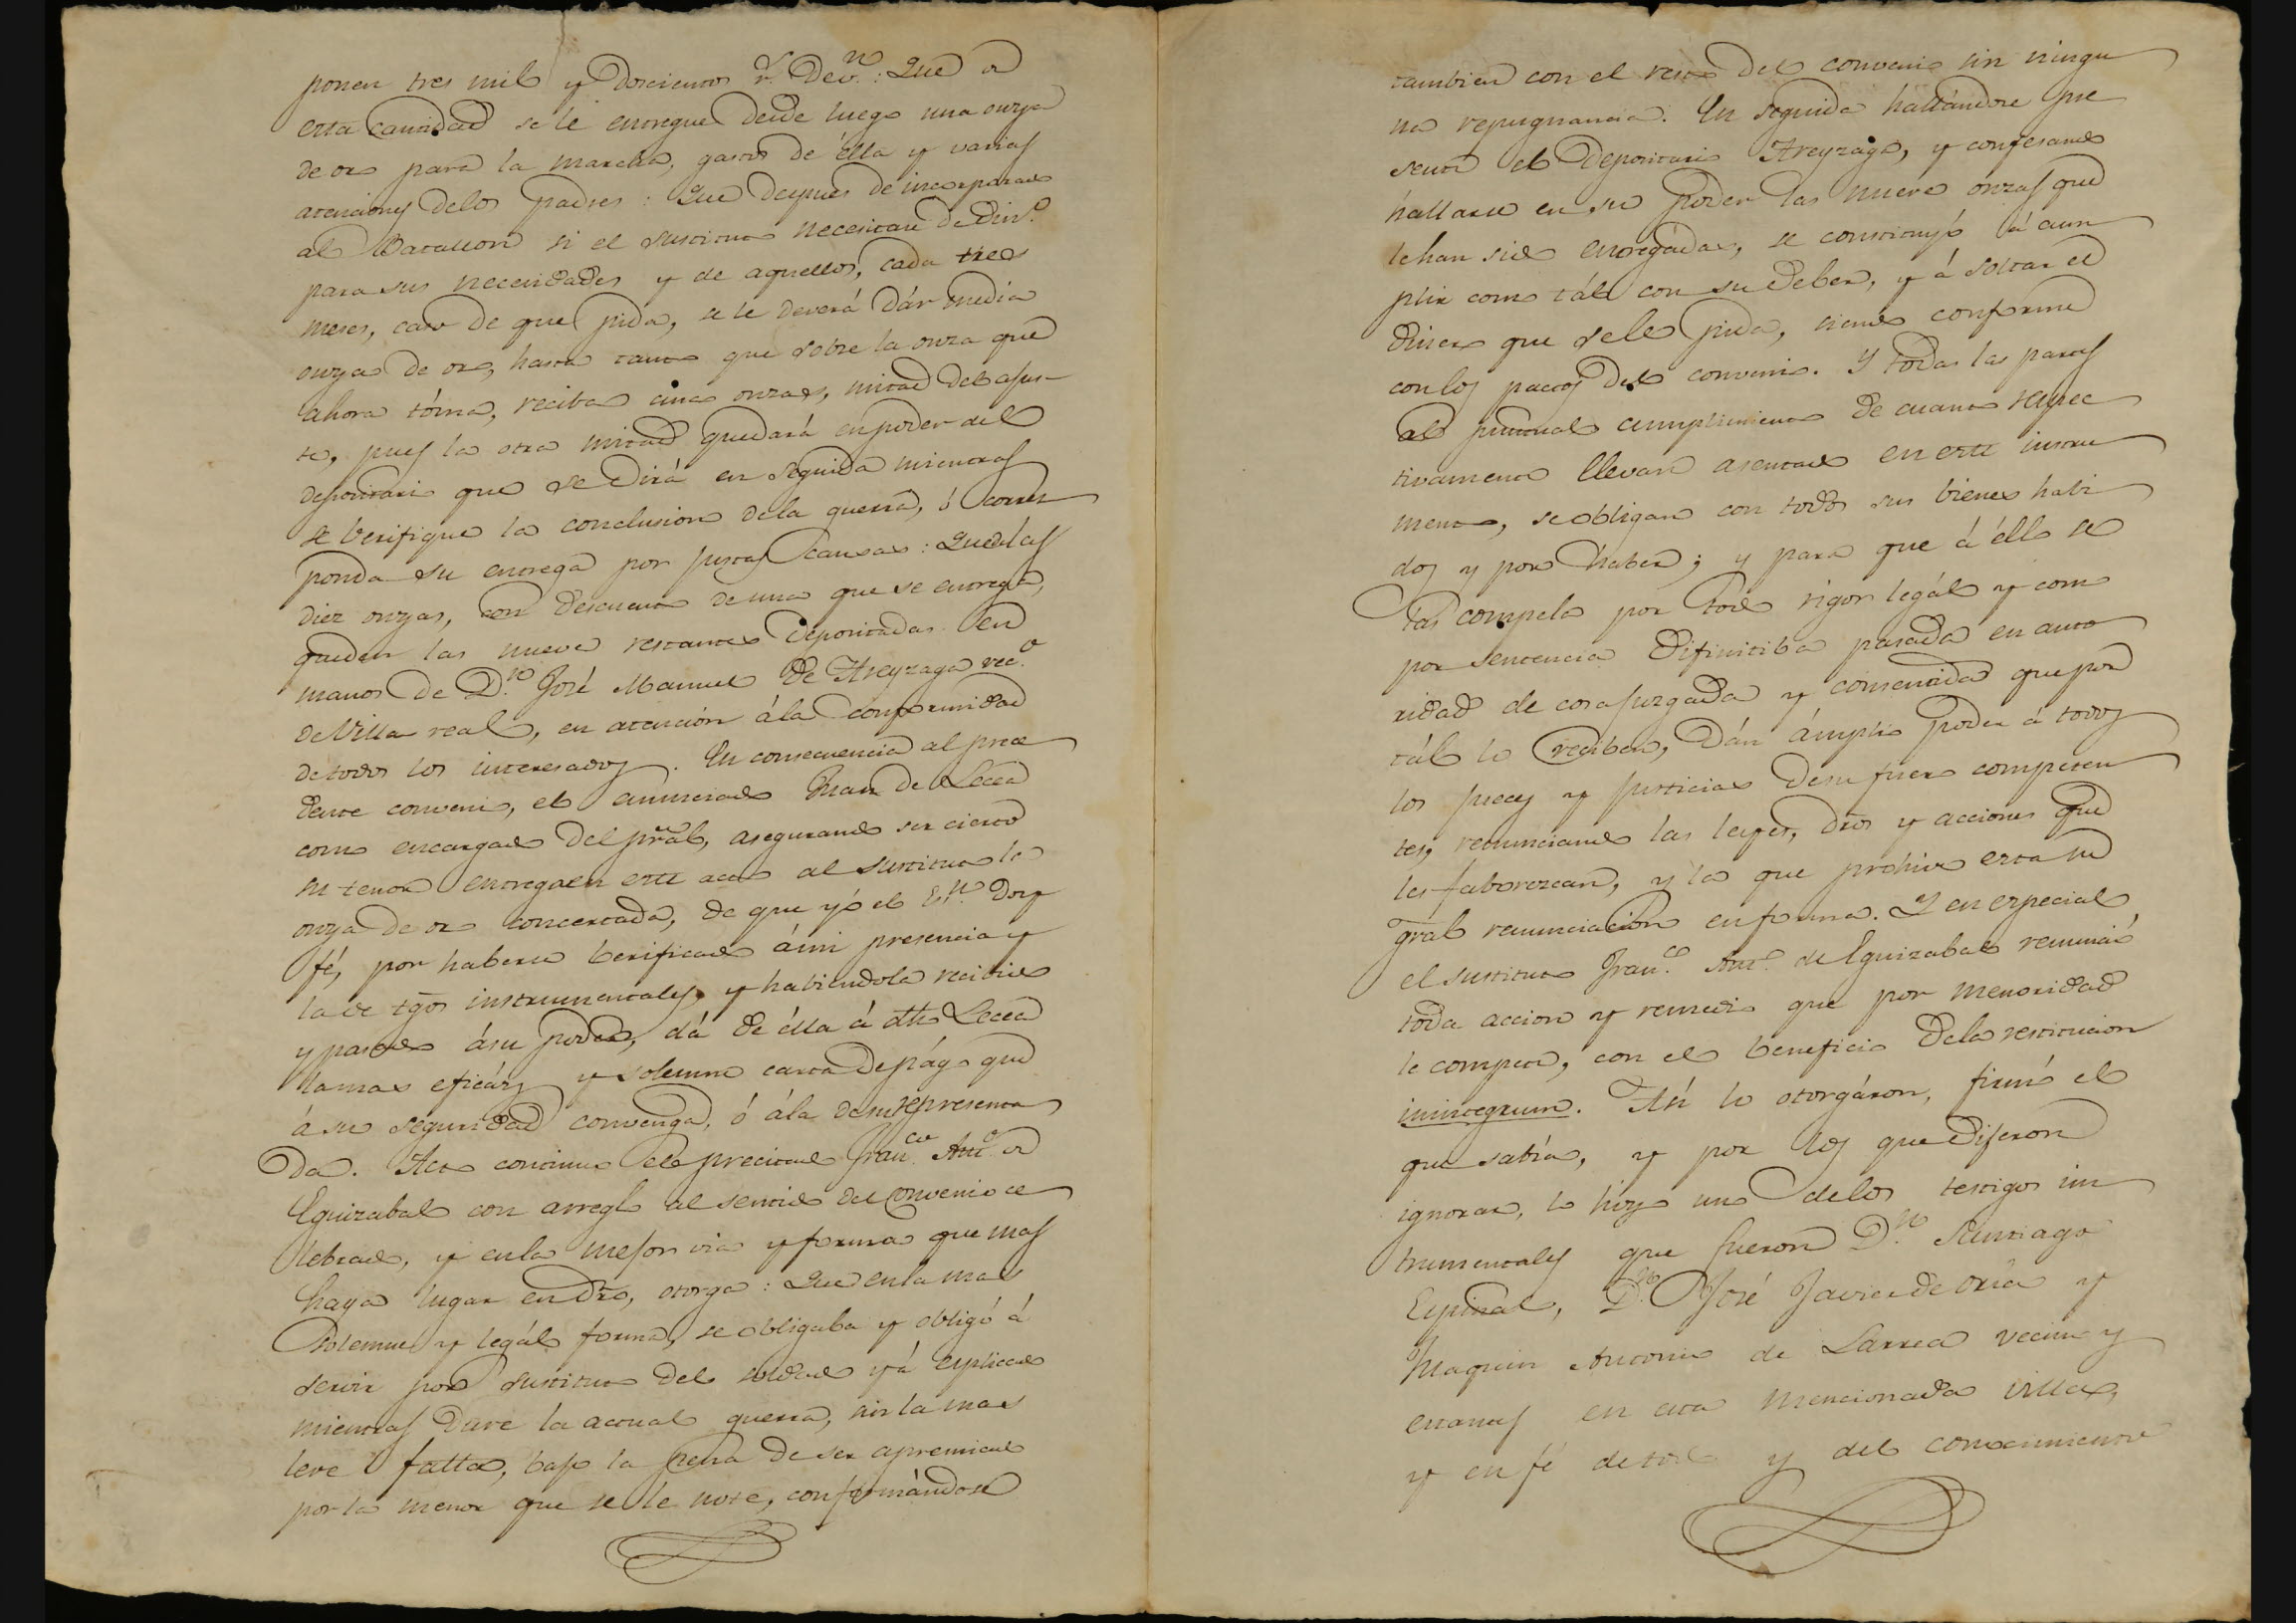 ponen tres mil y Doscientos r.s De v.n : Que a
esta cantidad se le entregue desde luego una onza
de oro para la marcha, gastos de élla y varias
atenciones delos padres : Que despues de incorporado
al Batallon si el sustituto necesitare de din.o
para sus necesidades y de aquellos, cada tres
meses, caso de que pida, se le deverá dár media
onza de oro, hasta tanto que sobre la onza que
ahora tóma, reciba cinco onzas, mitad del ajus-
te, pues la otra mitad quedará en poder del
depositario que se Dirá en seguida mientras
se berifique la conclusion dela guerra, ó corres
ponda su entrega por justas causas : Que las
diez onzas, con descuento de una que se entrega,
queden las nueve restantes depositadas en
manos de D.n José Manuel de Areyzaga vec.o
de Villa real, en atención ála conformidad
de todos los interesados. En consecuencia al prece
dente convenio, el enunciado Juan de Lecea
como encargado del prál, asegurando ser cierto
su tenor entrega en este acto al sustituto la
onza de oro concertada, de que yó el Es.no Doy
fé, por haberse berificado á mi presencia y
la de tgõs instrumentales, y habiendola recibido
y pasado ásu poder, dá de élla á dho Lecea
la mas eficáz y solemne carta de págo que
á su seguridad convenga, ó ála de su representa
da. Acto continuo el precitado Fran.co Ant.o de
Eguizabal con arreglo al sentido del Convenio ce
lebrado, y en la mejor via y forma que mas
haya lugar en Dro, otorga : Que en la mas
Solemne y legál forma, se obligaba y obligó á
servir por sustituto del soldado yá esplicado
mientras Dure la actual guerra, sin la mas
leve falta, bajo la pena de ser apremiado
por la menor que se le note, conformándose
tambien con el resto del convenio sin ningu
na repugnancia. En seguida hallándose pre
sente el Depositario Areyzaga, y confesando
hallarse en su poder las nueve onzas que
le han sido entregádas, se constituyó á cum
plir como tál con su deber, y á soltar el
dinero que se le pida, siendo conforme
con los pactos del convenio. Y todas las partes
al puntual cumplimiento de cuanto respec
tivamente llevan asentado en este instru
mento, se obligan con todos sus bienes habi
dos y por haber; y para que á éllo se
las compela por todo rigor legál y como
por sentencia Difinitiba pasada en auto
ridad de cosa juzgada y consentida que por
tál lo reciben, Dán ámplio poder á todos
los jueces y justicias de su fuero competen
tes, renunciando las leyes, dros y acciones que
les faborezcan, y la que prohive esta su
gral renunciacion en forma. Y en especial
el sustituto Fran.co Ant.o de Eguizabal renunció
toda accion y remedio que por menoridad
le compete, con el beneficio dela restitucion
inintegrum. Asi lo otorgáron, firmó el
que sabía, y por los que dijeron
ignorar, lo hizo uno delos testigos ins
trumentales que fueron D.n Santiago
Espinal, D.n José Javier de Oria y
Joaquin Antonio de Larrea vecinos y
estantes en esta mencionada villa,
y en fé de todo y del conocimiento